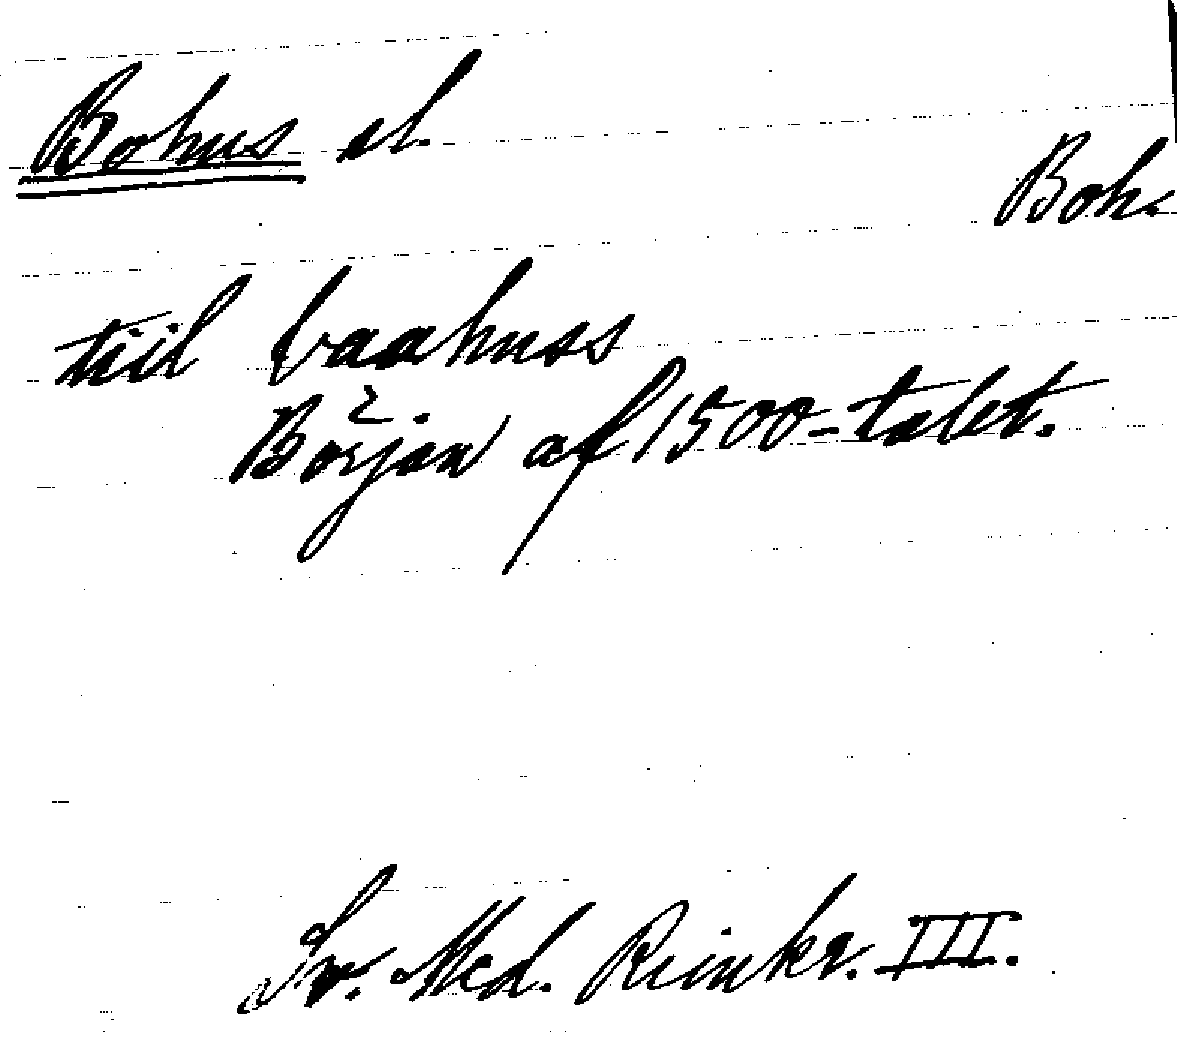 Bohus sl.
Boh.
tiil baahuss
Början af 1500-talet.
Sv. Med. Rimkr. III.